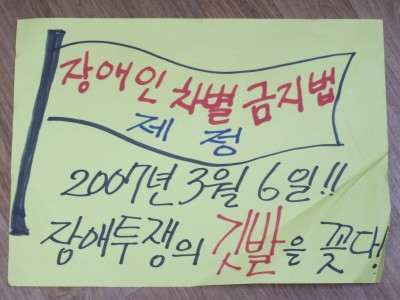 장애인 차별 금지법
제 정
2007년 3월 6일!!
장애투쟁의 깃발을 꽂다!